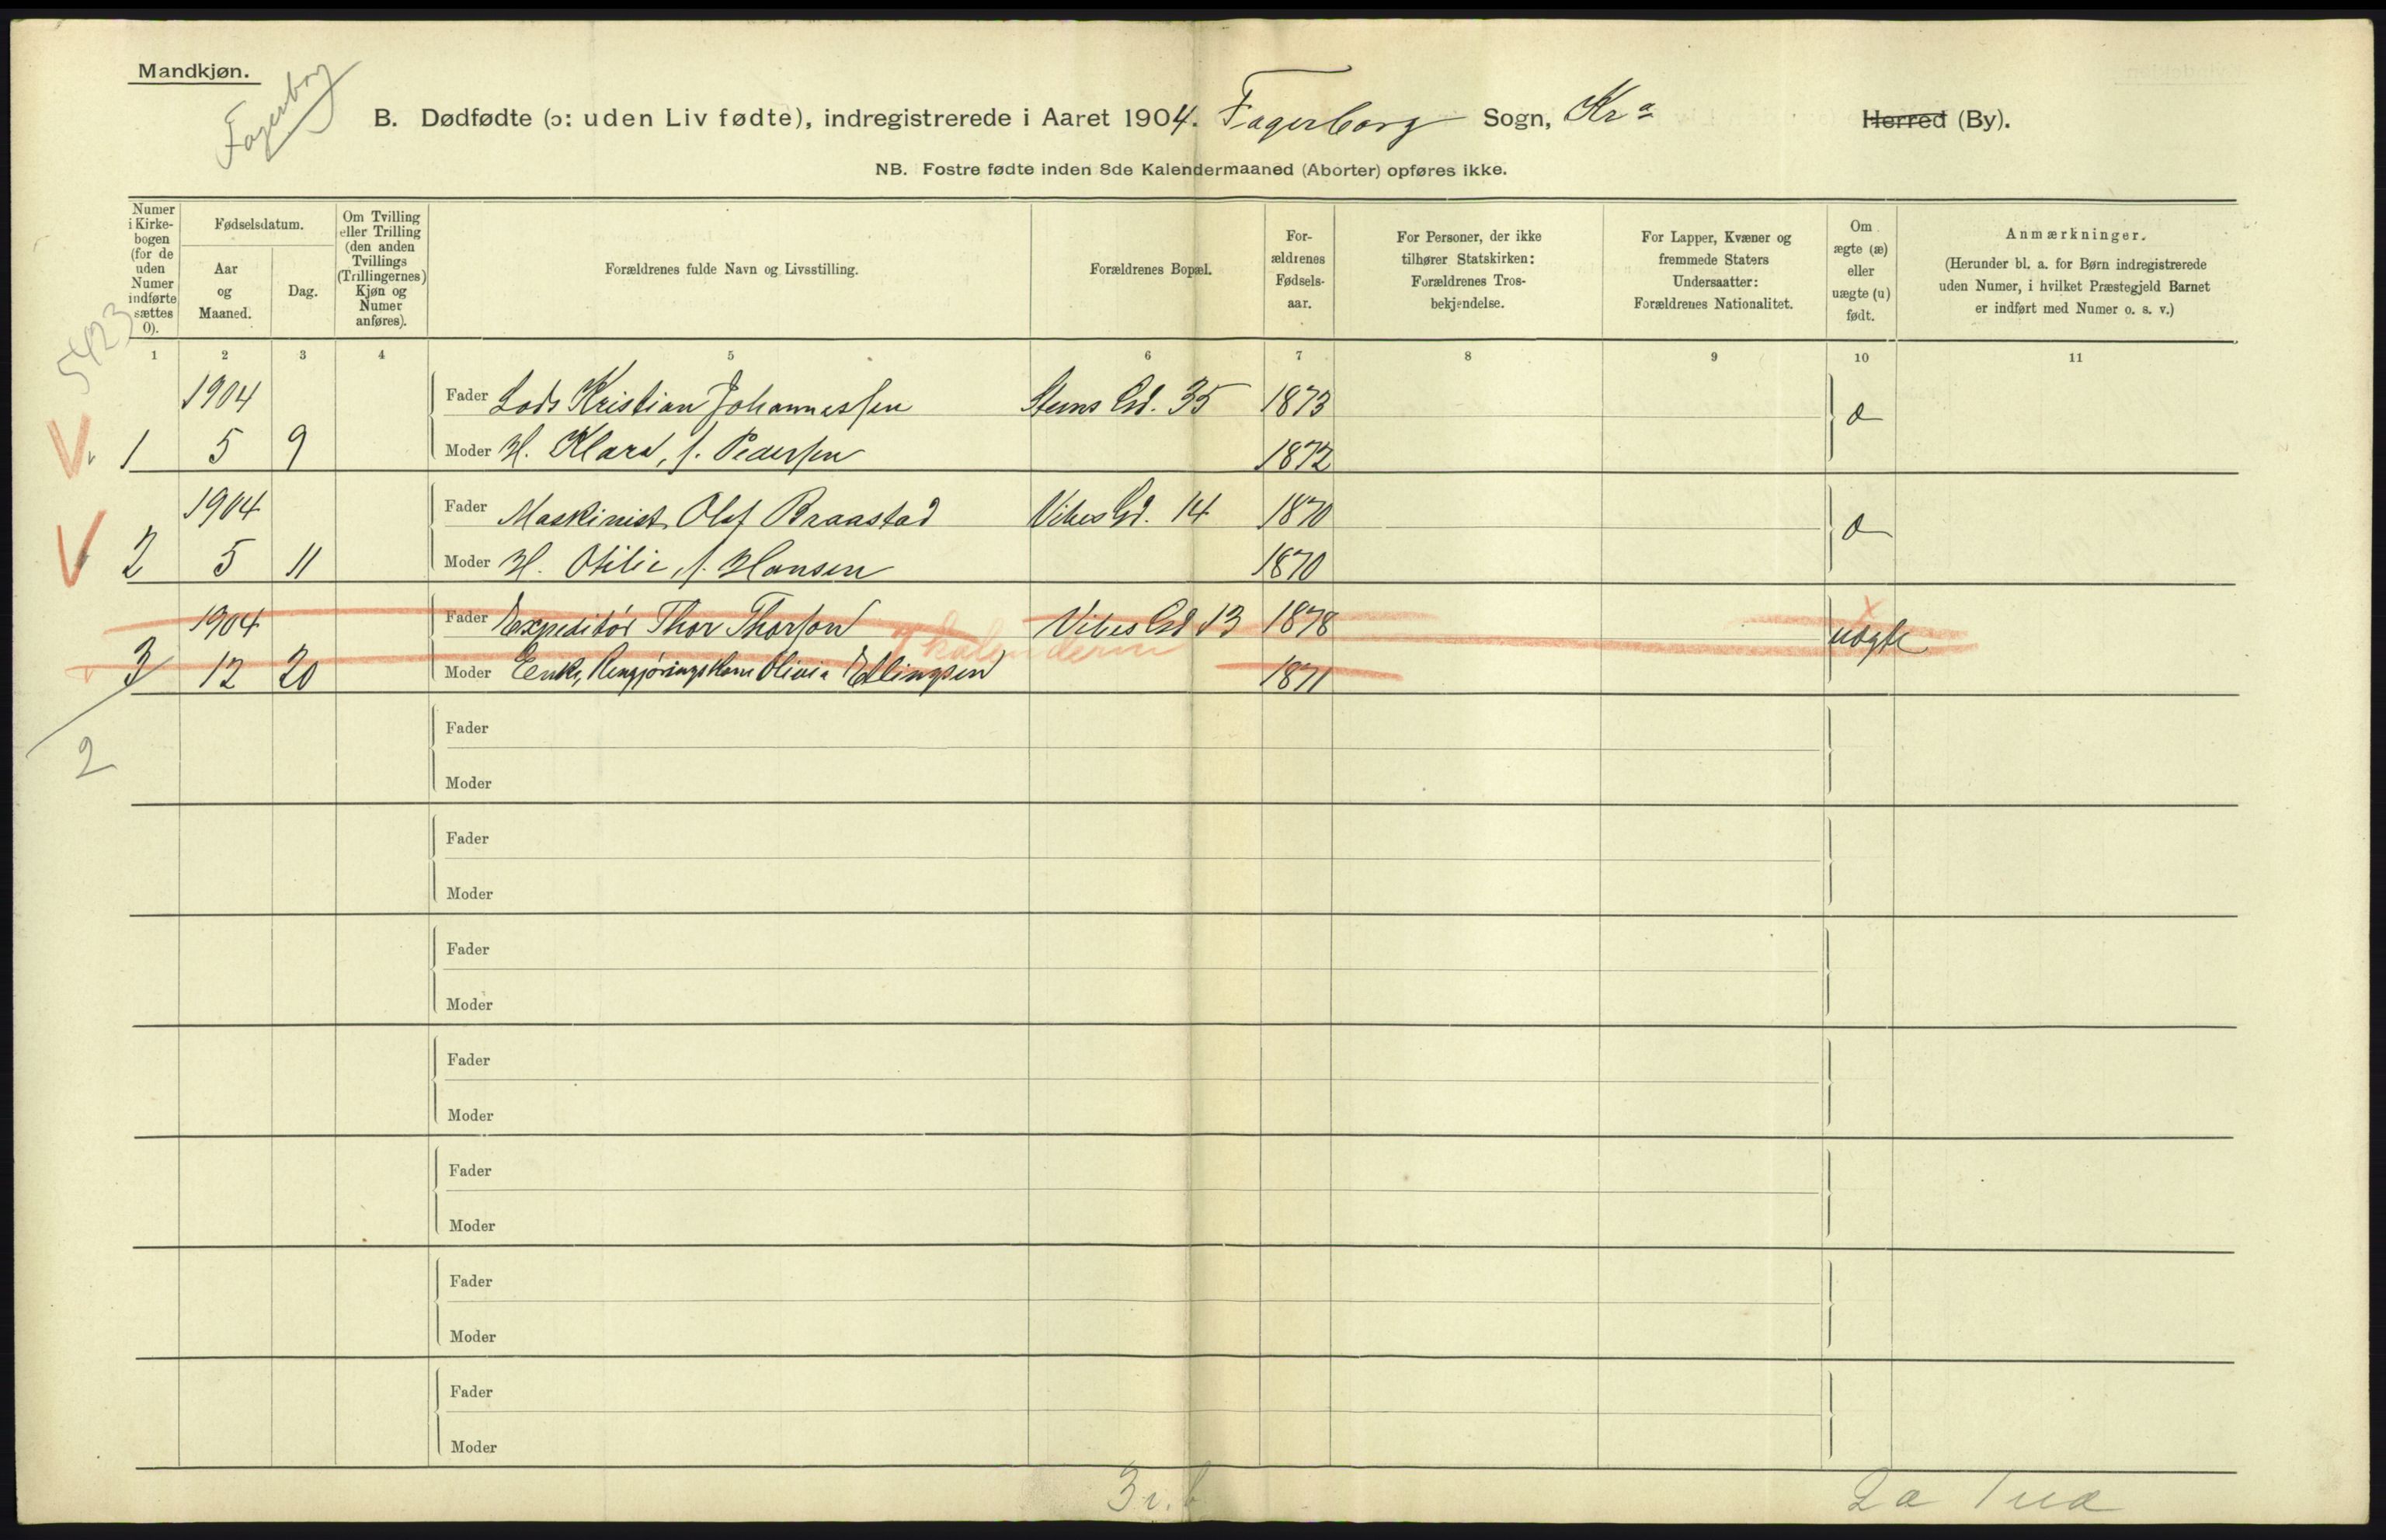 Mandkjøn.
Fagerborg
B. Dødfødte (ɔ: uden Liv fødte), indregistrerede i Aaret 1904. Fagerborg Sogn, Kra Herred (By).
NB. Fostre fødte inden 8de Kalendermaaned (Aborter) opføres ikke.
Numer i Kirke-bogen (for de uden Numer indførte sættes 0).
Fødselsdatum.
Aar og Maaned.
Dag.
Om Tvilling eller Trilling (den anden Tvillings (Trillingernes) Kjøn og Numer anføres).
Forældrenes fulde Navn og Livsstilling.
Forældrenes Bopæl.
For-ældrenes Fødsels-aar.
For Personer, der ikke tilhører Statskirken: Forældrenes Tros-bekjendelse.
For Lapper, Kvæner og fremmede Staters Undersaatter: Forældrenes Nationalitet.
Om ægte (æ) eller uægte (u) født.
Anmærkninger.
(Herunder bl. a. for Børn indregistrerede uden Numer, i hvilket Præstegjeld Barnet er indført med Numer o. s. v.)
5423
1 2 3 4 5 6 7 8 9 10 11
1904 Fader Lods Kristian Johannessen Stens Gd. 35 1873 æ
V 1 5 9 Moder H. Klara, f. Pedersen 1872
1904 Fader Maskinist Olaf Braastad Vibes Gd. 14 1870 æ
V 2 5 11 Moder H. Otilie, f. Hansen 1870
1904 Fader Expeditør Thor Thorson Vibes Gd 13 1878 uægte
3 12 20 Moder Enke, Rengjøringskone Olivia Ellingsen 1871
7 kalenderm
2
Fader
Moder
Fader
Moder
Fader
Moder
Fader
Moder
Fader
Moder
Fader
Moder
Fader
Moder
2 æ 1 uæ